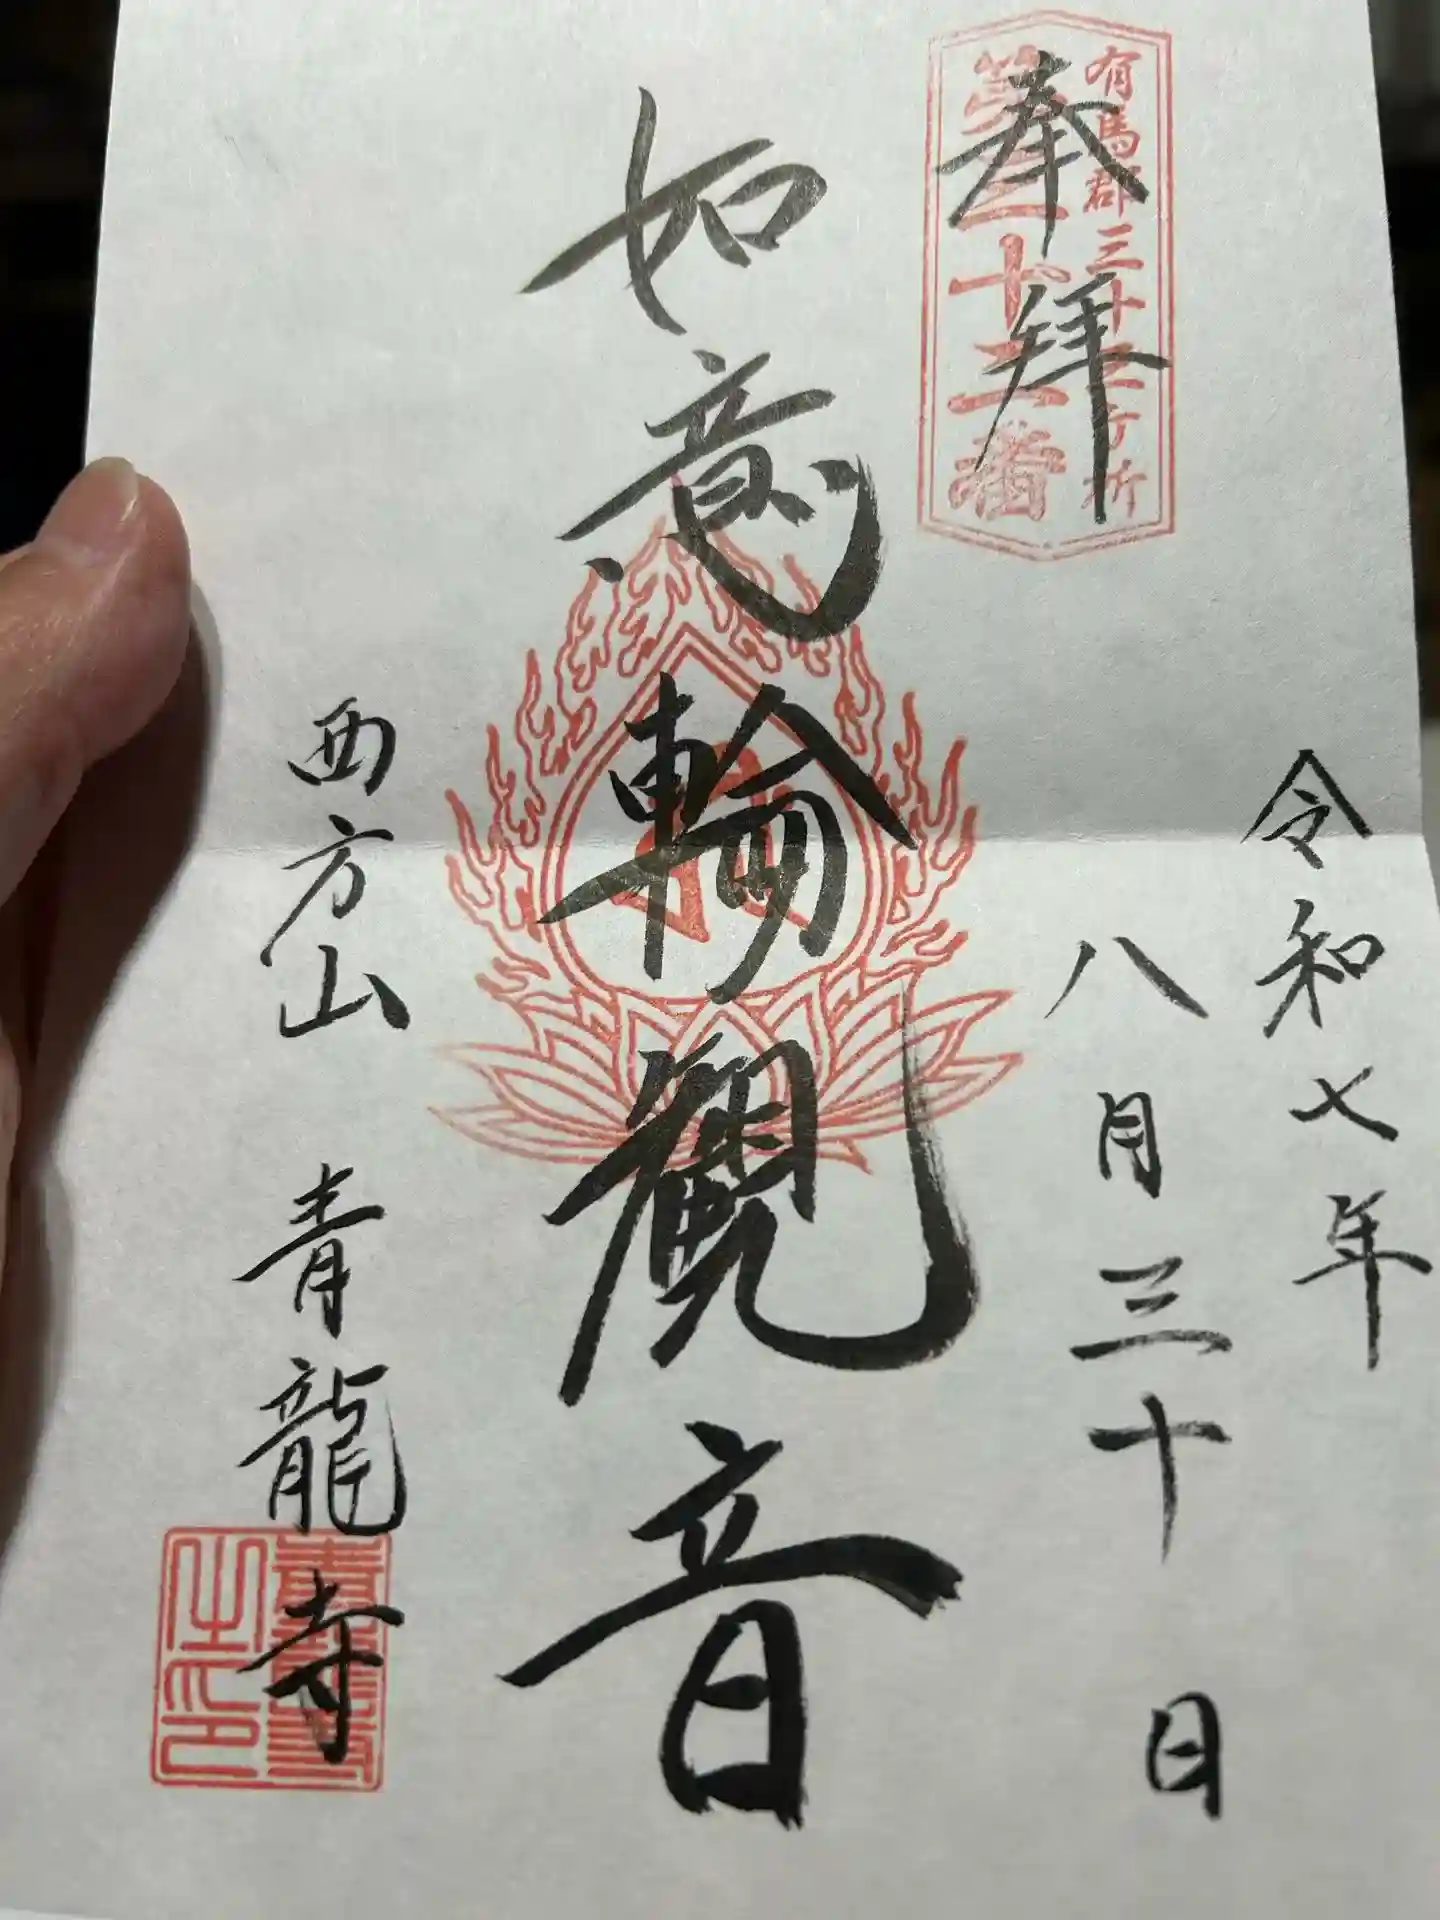 有馬郡三十三ヶ所
第十二番
奉拝
令和七年
八月三十日
如意輪觀音
西方山 青龍寺
青龍寺
之印